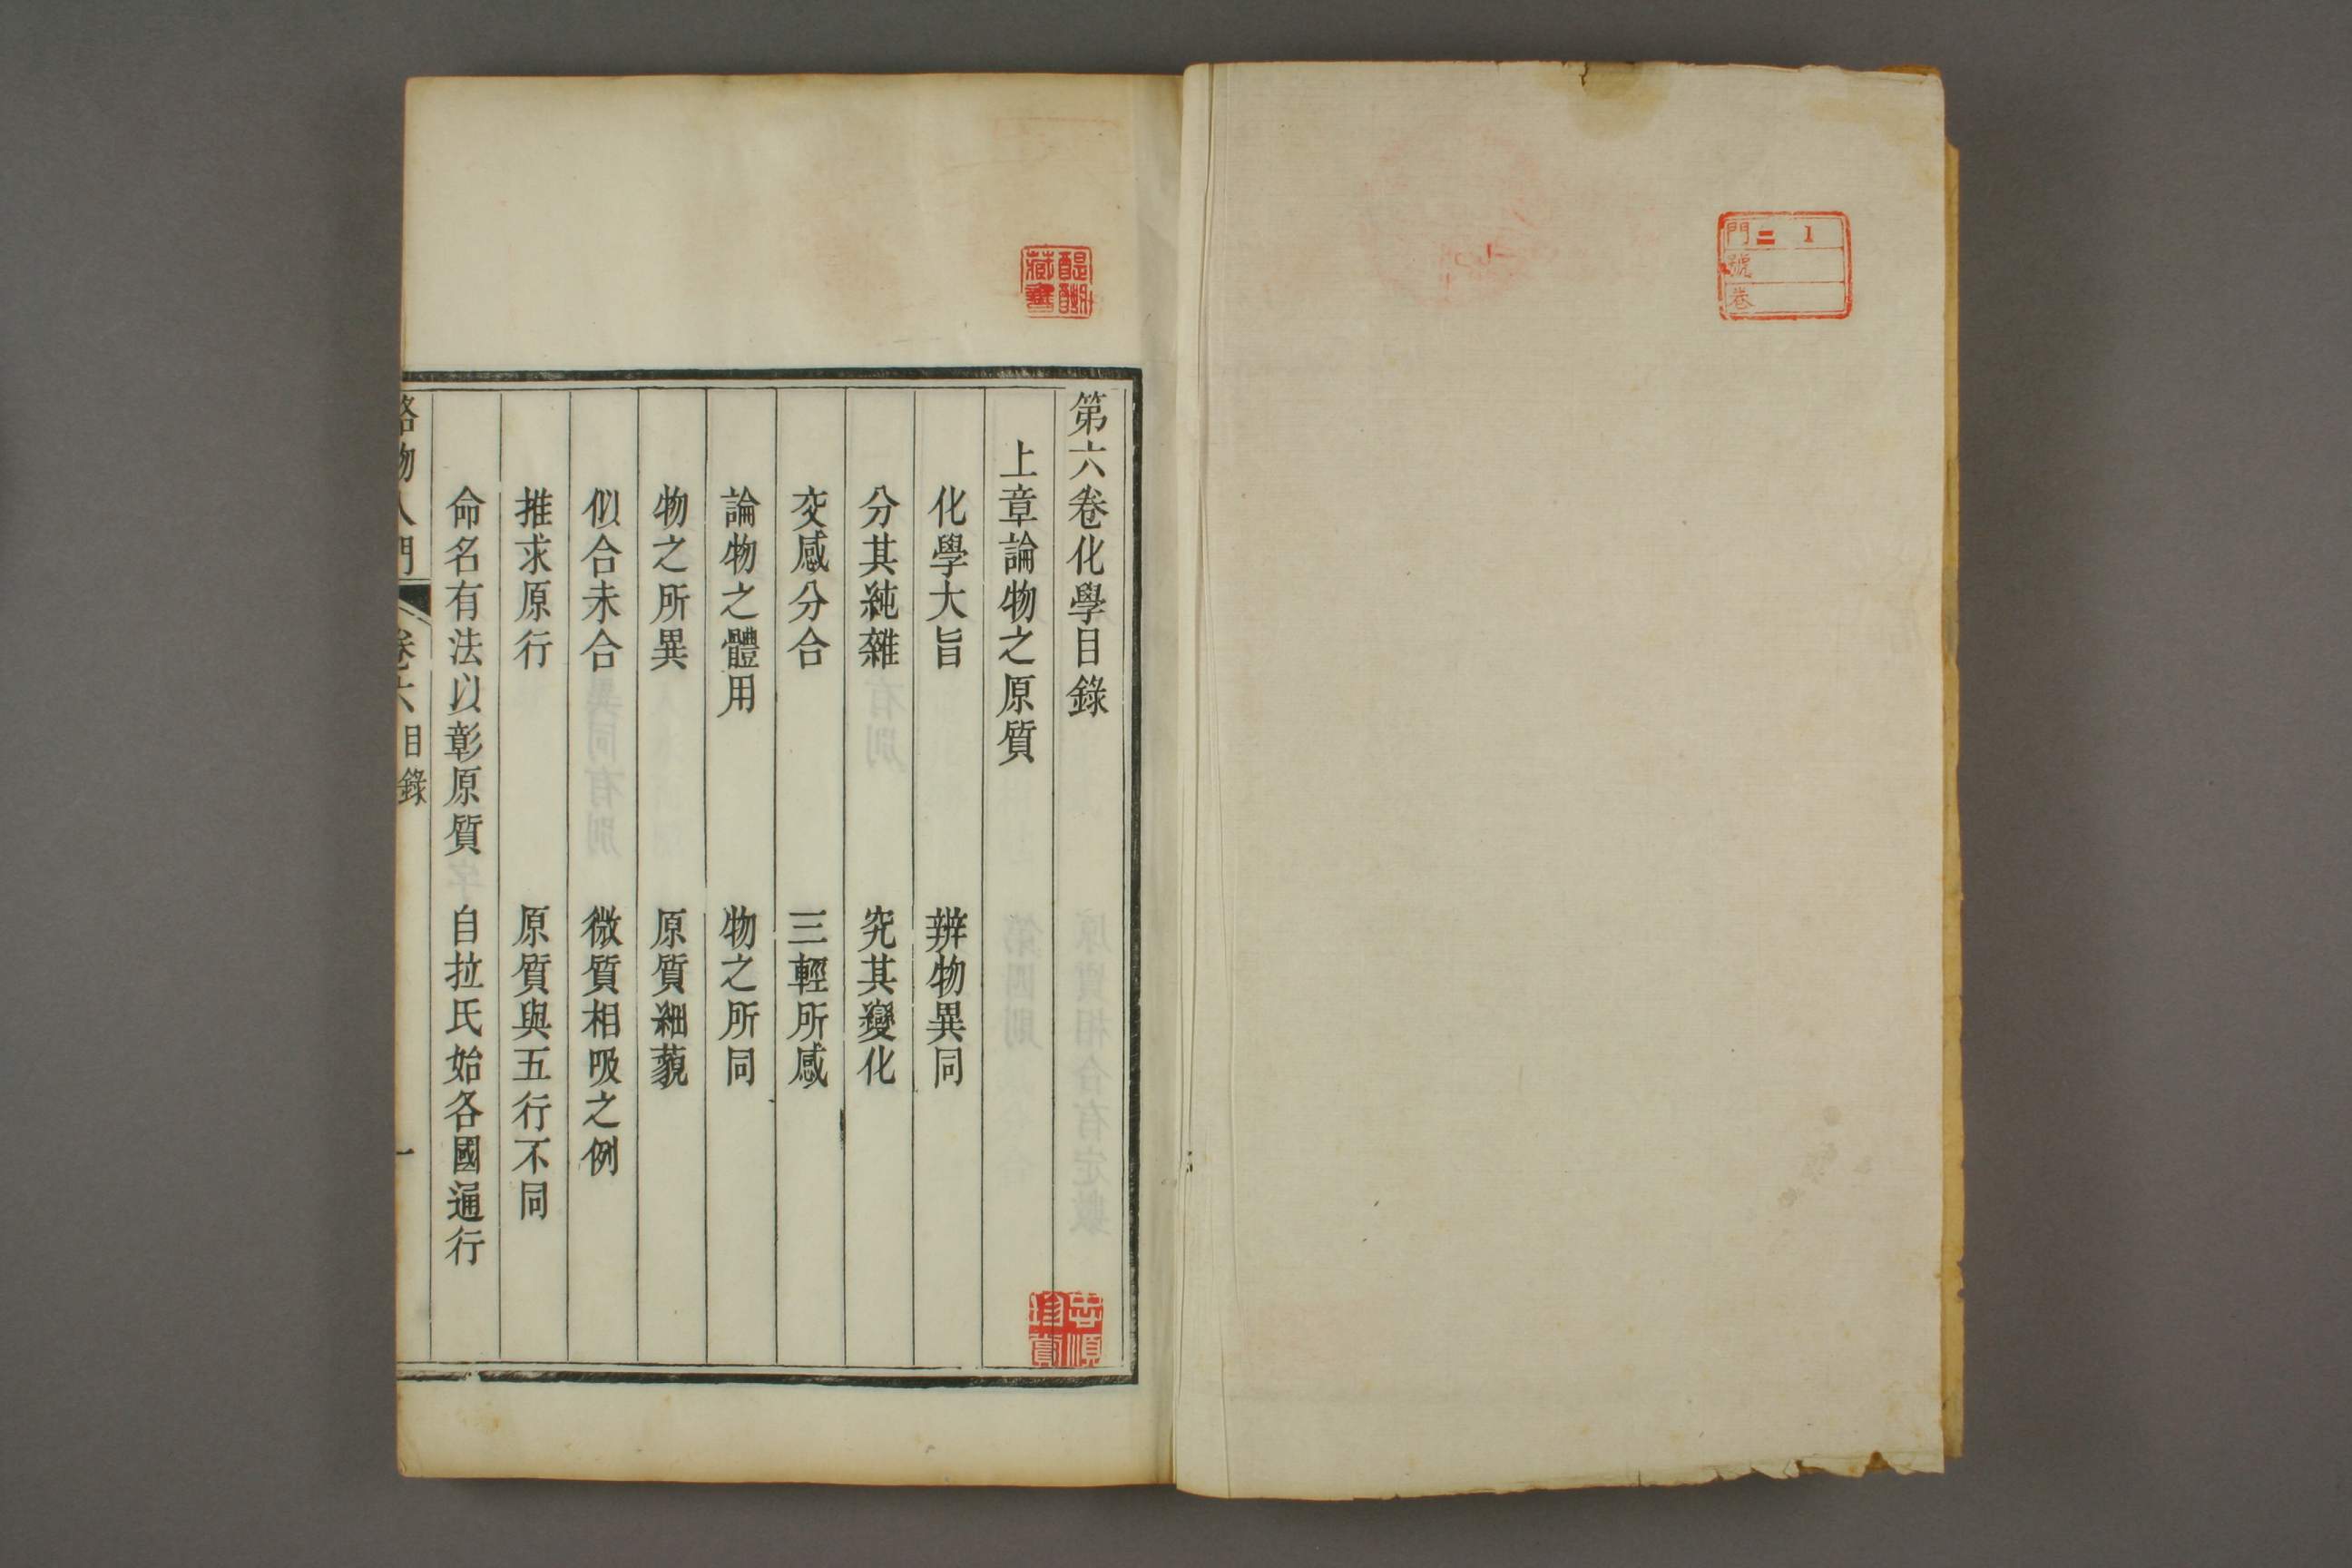 門 二 1
號
卷
醍醐
藏書
第六卷化學目錄
上章論物之原質
化學大旨 辨物異同
分其純雜 究其變化
交感分合 三輕所感
論物之體用 物之所同
物之所異 原質細藐
似合未合 微質相吸之例
推求原行 原質與五行不同
命名有法以彰原質 自拉氏始各國通行
格物入門 卷六目錄 一
忠順
珍賞